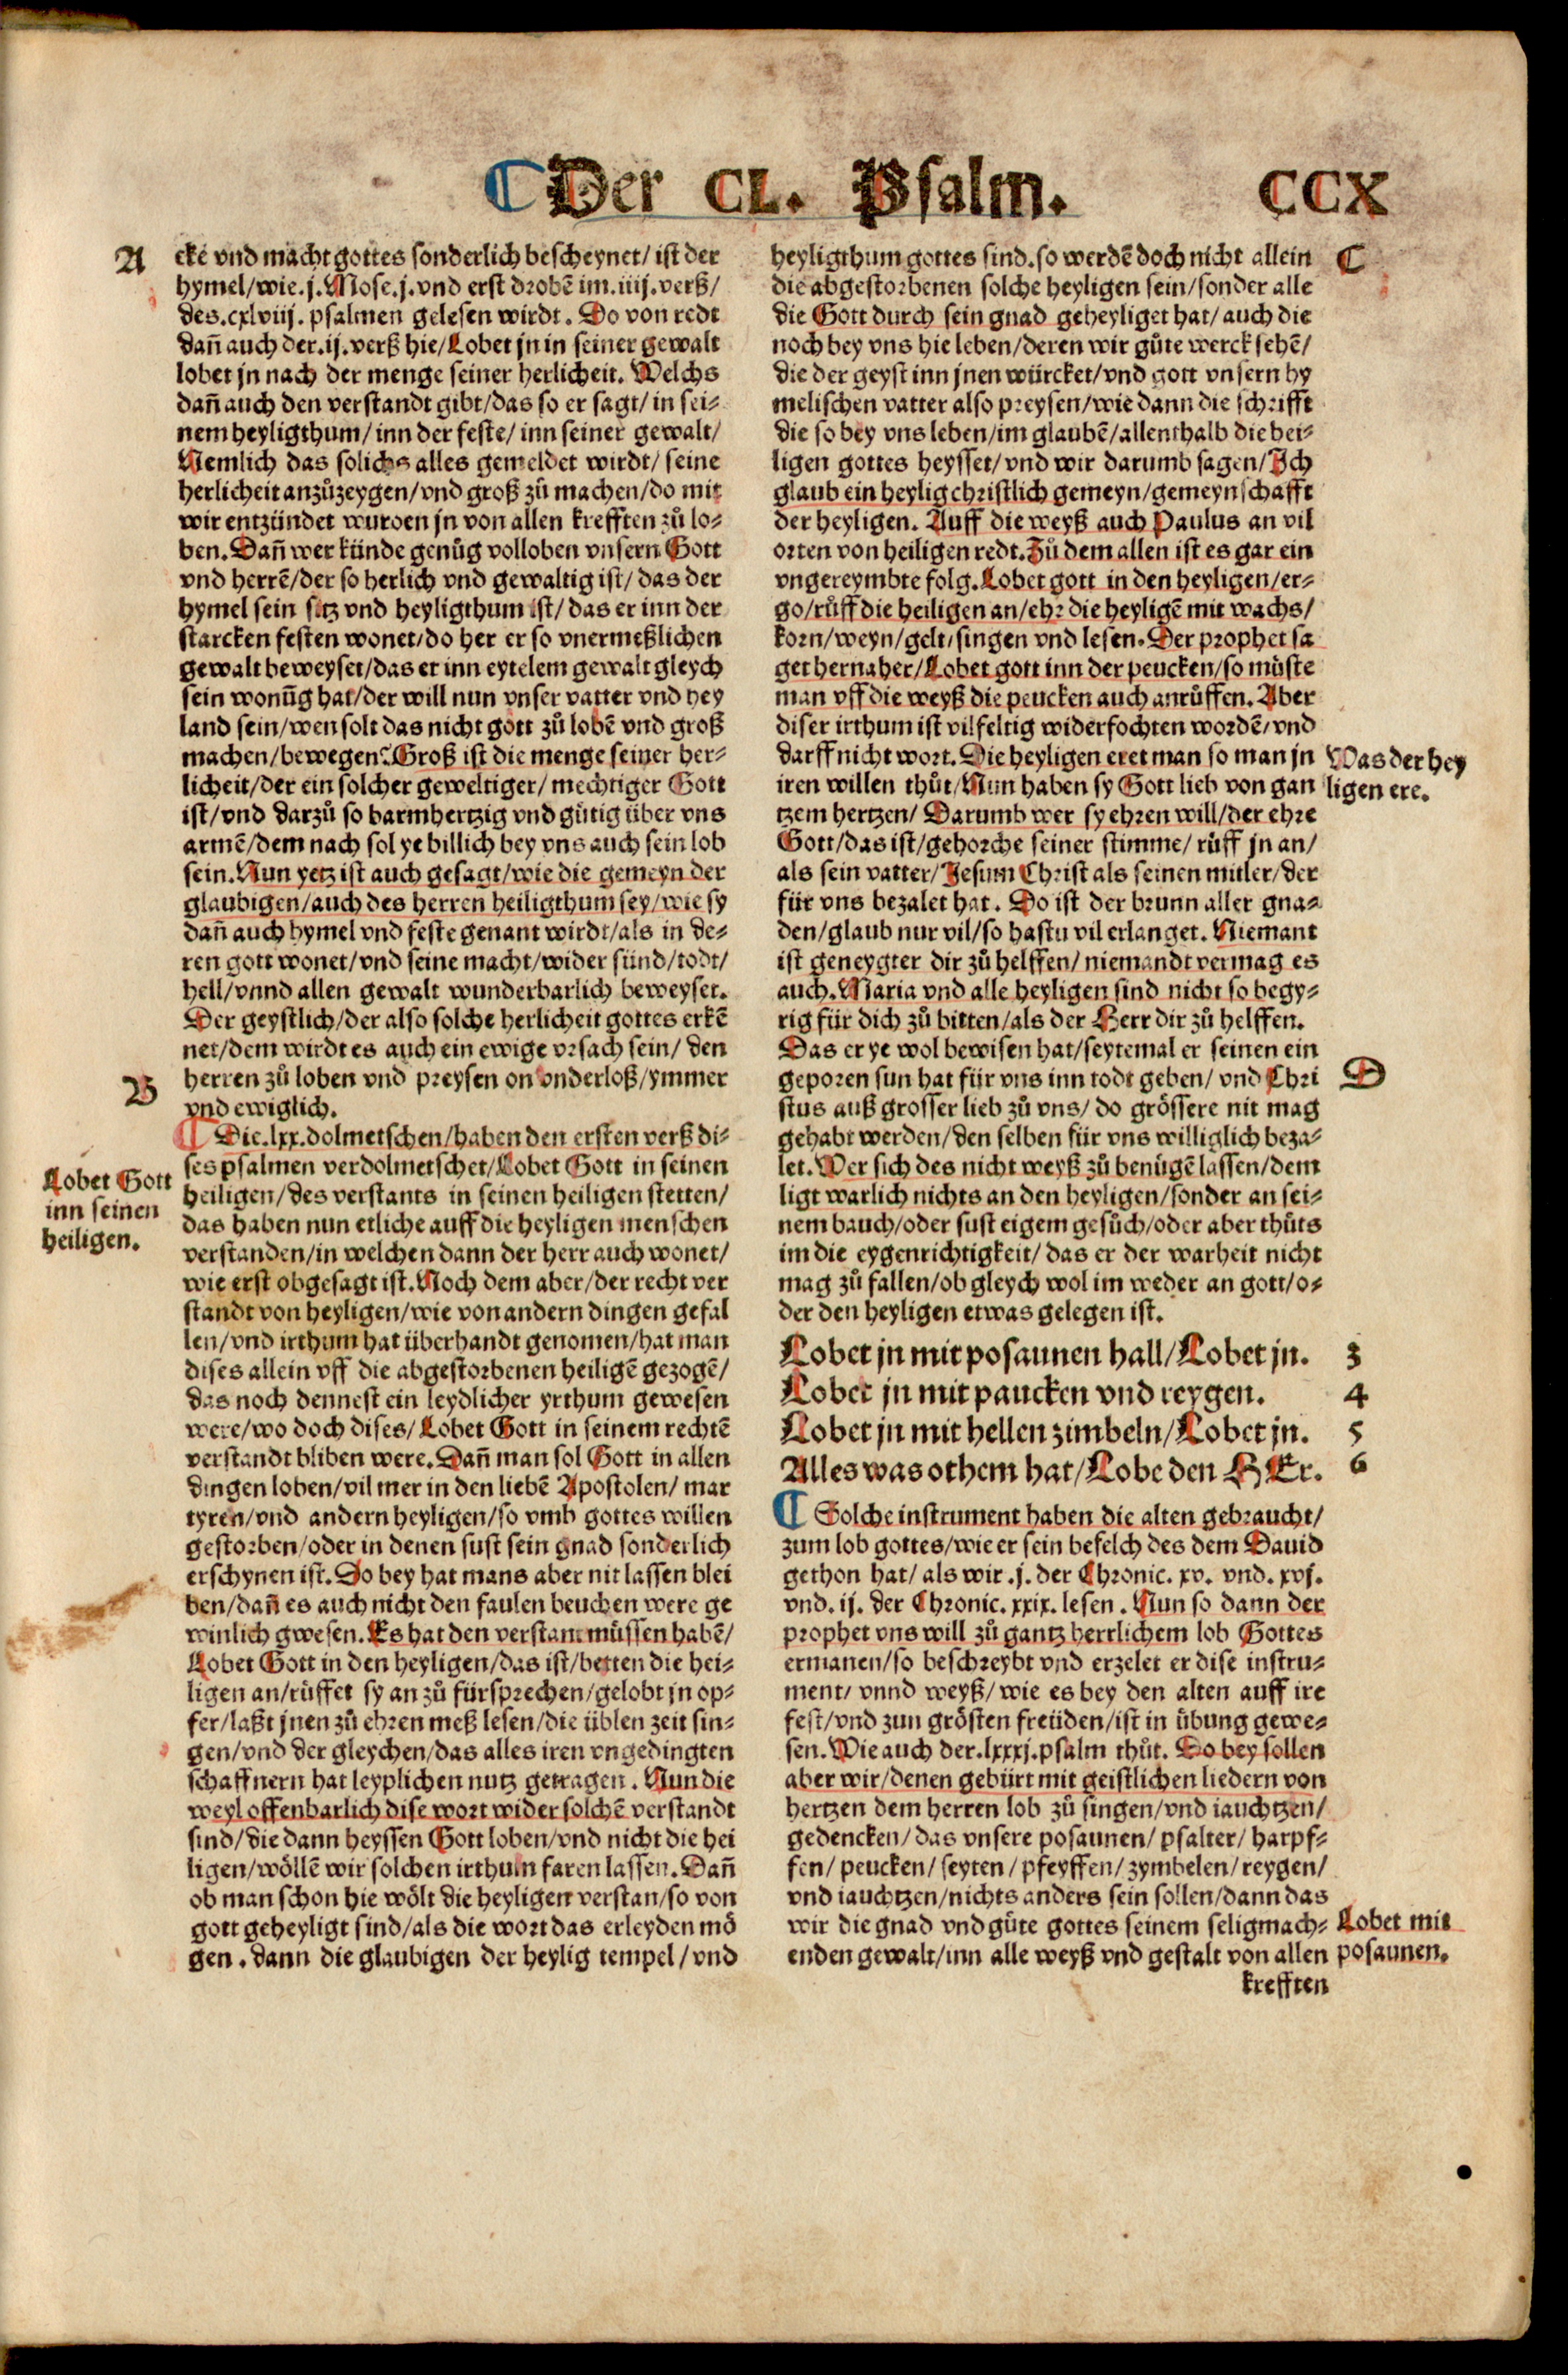 Der CL. Psalm. CCX
A
cke vnd macht gottes sonderlich bescheynet/ ist der
hymel/wie.j.Mose.j.vnd erst drobē im.iiij.verß/
des.cxlviij. psalmen gelesen wirdt. Do von redt
dañ auch der.ij.verß hie/Lobet jn in seiner gewalt
lobet jn nach der menge seiner herlicheit. Welchs
dañ auch den verstandt gibt/das so er sagt/in sei⸗
nem heyligthum/inn der feste/inn seiner gewalt/
Nemlich das solichs alles gemeldet wirdt/ seine
herlicheit anzůzeygen/vnd groß zů machen/do mit
wir entzündet wurden jn von allen krefften zů lo⸗
ben. Dañ wer künde genůg volloben vnsern Gott
vnd herrē/der so herlich vnd gewaltig ist/das der
hymel sein sitz vnd heyligthum ist/das er inn der
starcken festen wonet/do her er so vnermeßlichen
gewalt beweyset/das er inn eytelem gewalt gleych
sein wonūg hat/der will nun vnser vatter vnd hey
land sein/wen solt das nicht gott zů lobē vnd groß
machen/bewegen? Groß ist die menge seiner her⸗
licheit/der ein solcher geweltiger/ mechtiger Gott
ist/vnd darzů so barmhertzig vnd gütig über vns
armē/dem nach sol ye billich bey vns auch sein lob
sein. Nun yetz ist auch gesagt/wie die gemeyn der
glaubigen/auch des herren heiligthum sey/wie sy
dañ auch hymel vnd feste genant wirdt/als in de⸗
ren gott wonet/vnd seine macht/wider sünd/todt/
hell/vnnd allen gewalt wunderbarlich beweyset.
Der geystlich/der also solche herlicheit gottes erkē
net/dem wirdt es auch ein ewige vrsach sein/ den
B
herren zů loben vnd preysen on vnderloß/ymmer
vnd ewiglich.
Die.lxx.dolmetschen/haben den ersten verß di⸗
ses psalmen verdolmetschet/Lobet Gott in seinen
Lobet Gott
inn seinen
heiligen.
heiligen/des verstants in seinen heiligen stetten/
das haben nun etliche auff die heyligen menschen
verstanden/in welchen dann der herr auch wonet/
wie erst obgesagt ist. Noch dem aber/der recht ver
standt von heyligen/wie von andern dingen gefal
len/vnd irthum hat überhandt genomen/hat man
dises allein vff die abgestorbenen heiligē gezogē/
das noch dennest ein leydlicher yrthum gewesen
were/wo doch dises/Lobet Gott in seinem rechtē
verstandt bliben were. Dañ man sol Gott in allen
dingen loben/vil mer in den liebē Apostolen/ mar
tyren/vnd andern heyligen/so vmb gottes willen
gestorben/oder in denen sust sein gnad sonderlich
erschynen ist. Do bey hat mans aber nit lassen blei
ben/dañ es auch nicht den faulen beuchen were ge
winlich gwesen. Es hat den verstant müssen habē/
Lobet Gott in den heyligen/das ist/betten die hei⸗
ligen an/rüffet sy an zů fürsprechen/gelobt jn op⸗
fer/laßt jnen zů ehren meß lesen/die üblen zeit sin⸗
gen/vnd der gleychen/das alles iren vngedingten
schaffnern hat leyplichen nutz getragen. Nun die
weyl offenbarlich dise wort wider solchē verstandt
sind/die dann heyssen Gott loben/vnd nicht die hei
ligen/wöllē wir solchen irthum faren lassen. Dañ
ob man schon hie wölt die heyligen verstan/so von
gott geheyligt sind/als die wort das erleyden mö
gen. dann die glaubigen der heylig tempel/vnd
C
heyligthum gottes sind. so werdē doch nicht allein
die abgestorbenen solche heyligen sein/sonder alle
die Gott durch sein gnad geheyliget hat/auch die
noch bey vns hie leben/deren wir gůte werck sehē/
die der geyst inn jnen würcket/vnd gott vnsern hy
melischen vatter also preysen/wie dann die schrifft
die so bey vns leben/im glaubē/allenthalb die hei⸗
ligen gottes heysset/vnd wir darumb sagen/Ich
glaub ein heylig christlich gemeyn/gemeynschafft
der heyligen. Auff die weyß auch Paulus an vil
orten von heiligen redt. Zů dem allen ist es gar ein
vngereymbte folg. Lobet gott in den heyligen/er⸗
go/růff die heiligen an/ehr die heyligē mit wachs/
korn/weyn/gelt/singen vnd lesen. Der prophet sa
get hernaher/Lobet gott inn der peucken/so müste
man vff die weyß die peucken auch anrüffen. Aber
diser irthum ist vilfeltig widerfochten wordē/vnd
darff nicht wort. Die heyligen eret man so man jn
Was der hey
ligen ere.
iren willen thůt/Nun haben sy Gott lieb von gan
tzem hertzen/ Darumb wer sy ehren will/der ehre
Gott/das ist/gehorche seiner stimme/ růff jn an/
als sein vatter/Jesum Christ als seinen mitler/der
für vns bezalet hat. Do ist der brunn aller gna⸗
den/glaub nur vil/so hastu vil erlanget. Niemant
ist geneygter dir zů helffen/niemandt vermag es
auch. Maria vnd alle heyligen sind nicht so begy⸗
rig für dich zů bitten/als der Herr dir zů helffen.
Das er ye wol bewisen hat/seytemal er seinen ein
D
geporen sun hat für vns inn todt geben/ vnd Chri
stus auß grosser lieb zů vns/ do grössere nit mag
gehabt werden/den selben für vns williglich beza⸗
let. Wer sich des nicht weyß zů benügē lassen/dem
ligt warlich nichts an den heyligen/sonder an sei⸗
nem bauch/oder sust eigem gesůch/oder aber thůts
im die eygenrichtigkeit/das er der warheit nicht
mag zů fallen/ob gleych wol im weder an gott/o⸗
der den heyligen etwas gelegen ist.
Lobet jn mit posaunen hall/Lobet jn. 3
Lobet jn mit paucken vnd reygen. 4
Lobet jn mit hellen zimbeln/Lobet jn. 5
Alles was othem hat/Lobe den HEr. 6
Solche instrument haben die alten gebraucht/
zum lob gottes/wie er sein befelch des dem Dauid
gethon hat/ als wir.j. der Chronic. xv. vnd. xvj.
vnd. ij. der Chronic. xxix. lesen. Nun so dann der
prophet vns will zů gantz herrlichem lob Gottes
ermanen/so beschreybt vnd erzelet er dise instru⸗
ment/ vnnd weyß/ wie es bey den alten auff ire
fest/vnd zun grösten freüden/ist in übung gewe⸗
sen. Wie auch der.lxxxj.psalm thůt. Do bey sollen
aber wir/denen gebürt mit geistlichen liedern von
hertzen dem herren lob zů singen/vnd iauchtzen/
gedencken/das vnsere posaunen/ psalter/ harpf⸗
fen/ peucken/ seyten/ pfeyffen/ zymbelen/ reygen/
vnd iauchtzen/nichts anders sein sollen/dann das
wir die gnad vnd güte gottes seinem seligmach⸗
enden gewalt/inn alle weyß vnd gestalt von allen
Lobet mit
posaunen.
krefften